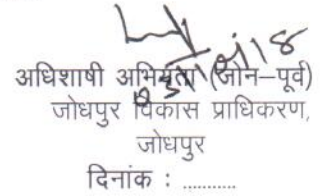 अधिशाषी अभियंता (जोन–पूर्व)
जोधपुर विकास प्राधिकरण,
जोधपुर
दिनांक : ...........